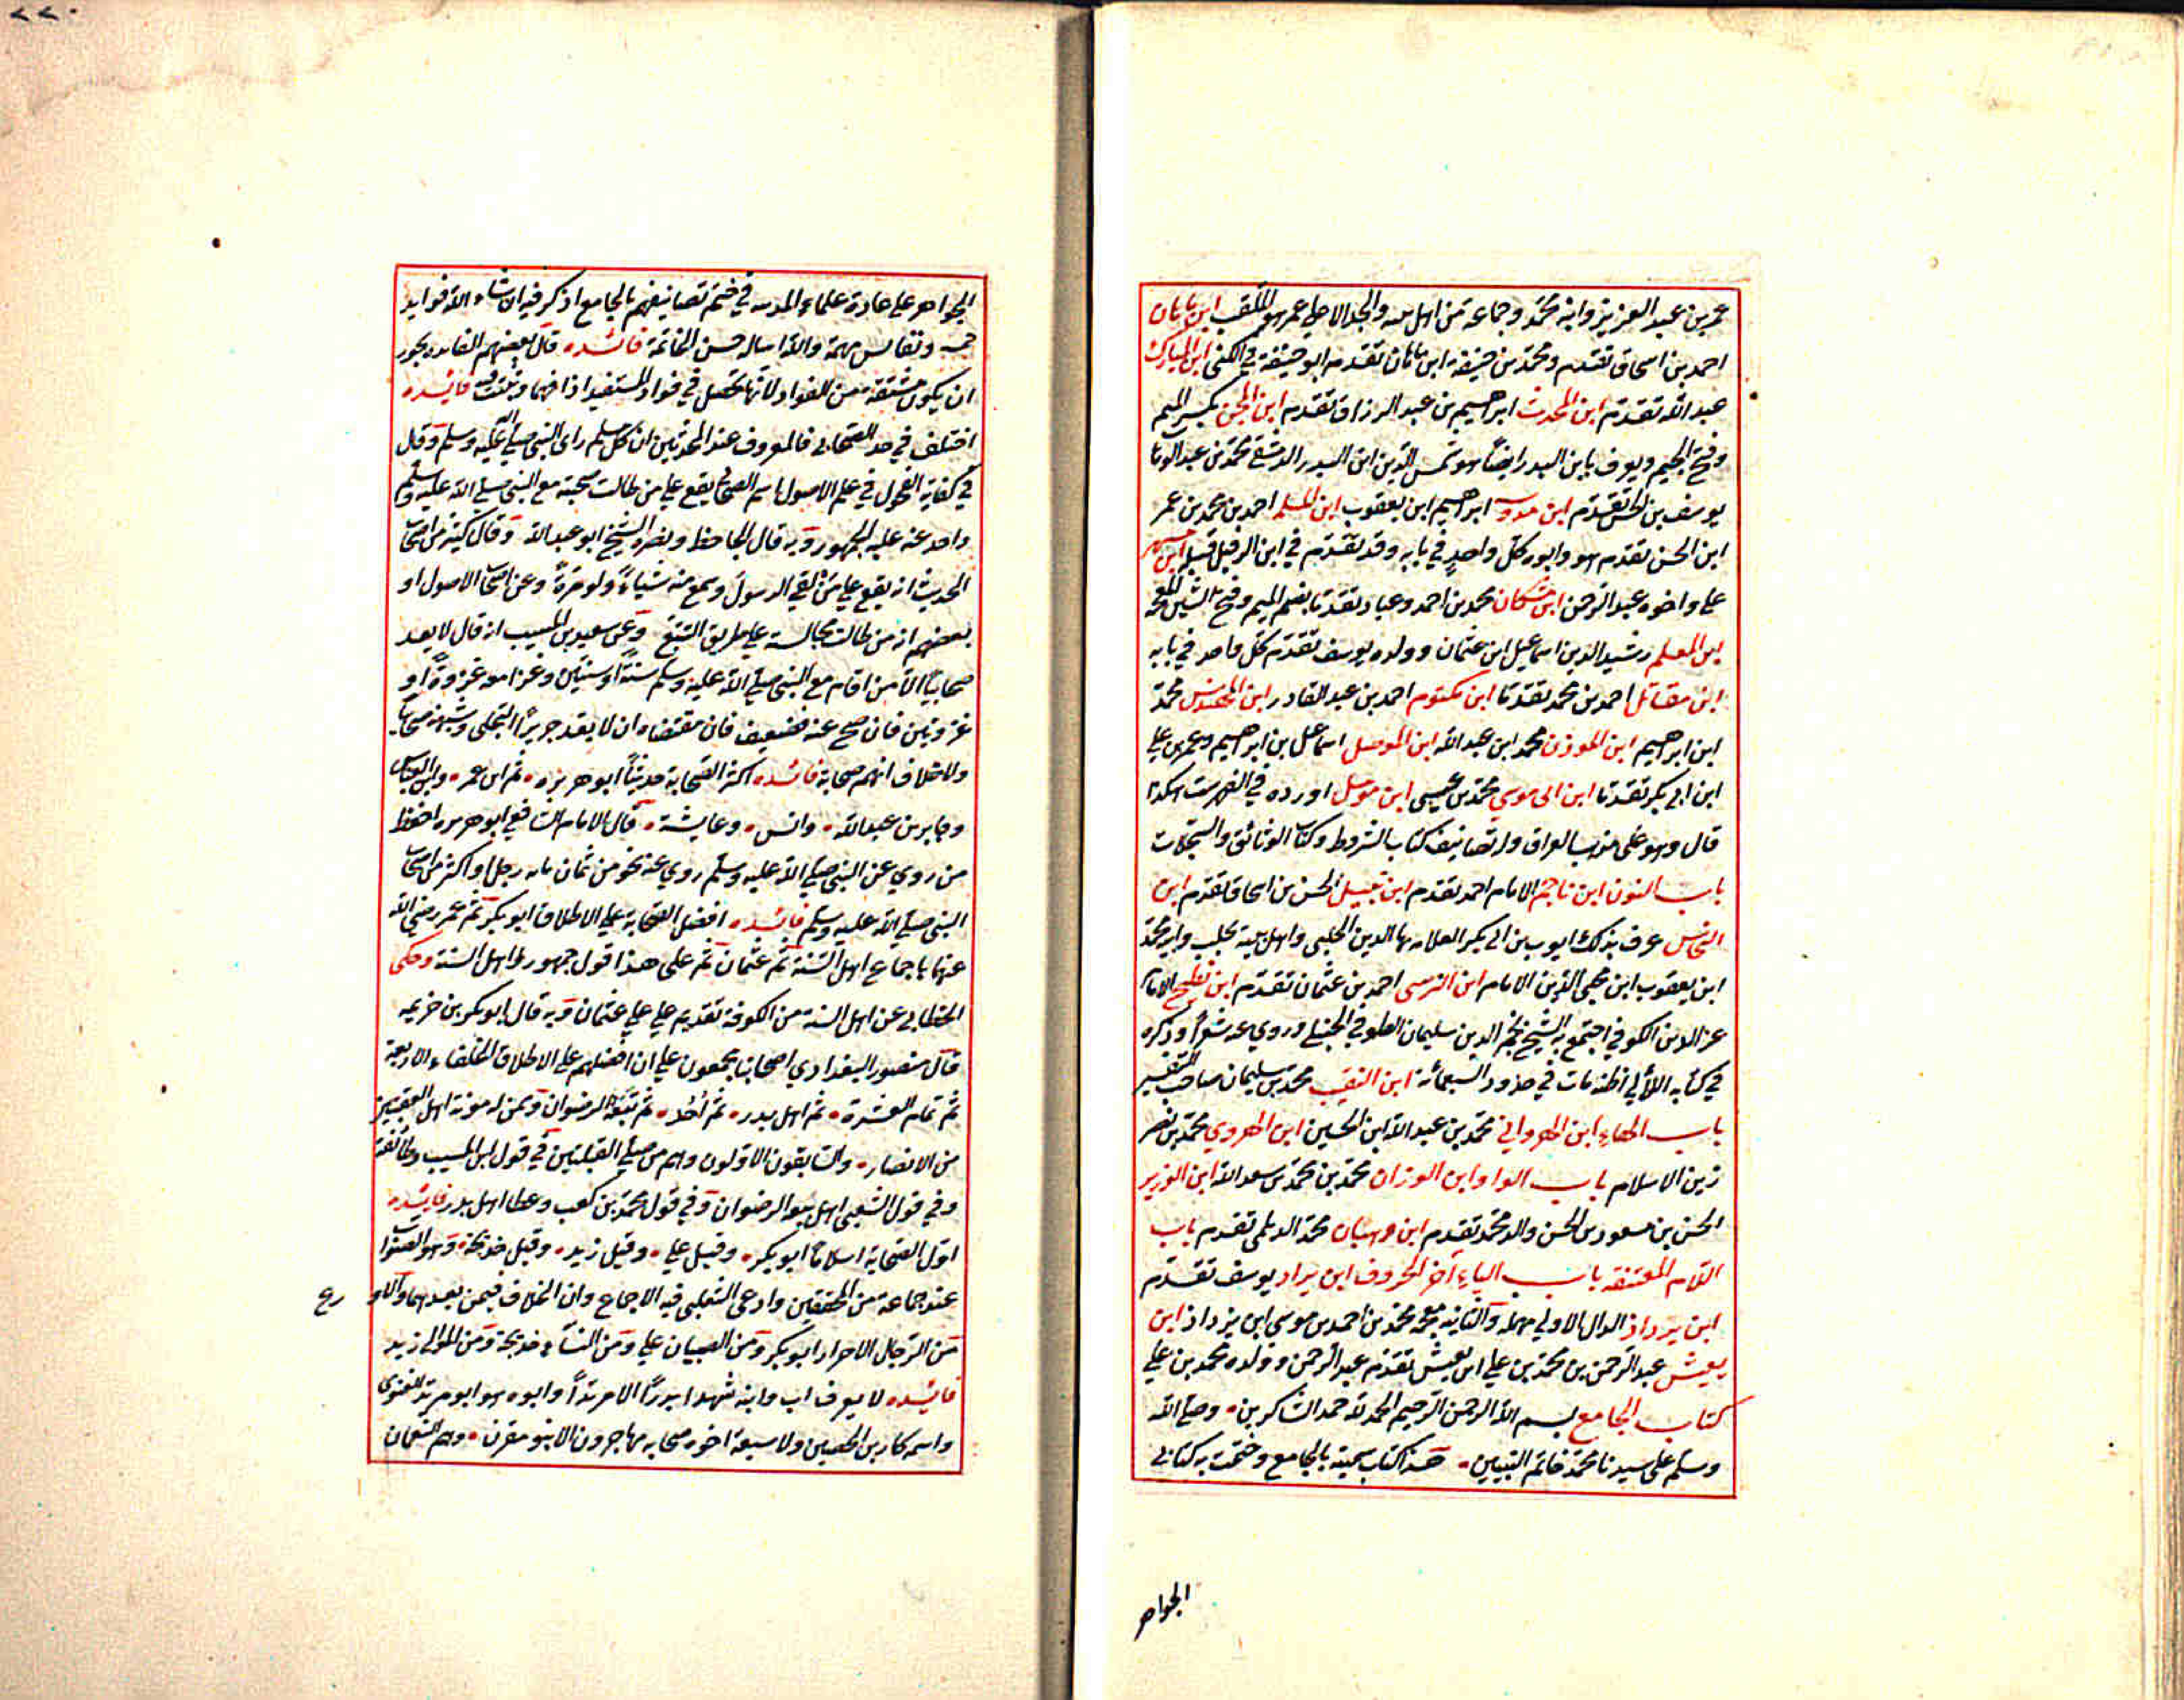 عمر بن عبد العزيز وابنه محمد وجماعة من اهل بيته والجد الاعلى عمر هو الملقب ابن مازه
احمد بن اسحاق تقدم ومحمد بن حنيفة ابن ماهان تقدم ابو حنيفة في الكنى ابن المبارك
عبد الله تقدم ابن المحدث ابراهيم بن عبد الرزاق تقدم ابن المجن بكسر الميم
وفتح الجيم ويعرف بابن البدر ايضا هو شمس الدين ابن البدر الدمشقي محمد بن عبد الوهاب
يوسف بن الحسن تقدم ابراهيم ابن يعقوب ابن المسلم احمد بن محمد بن عمر
ابن الحسن تقدم هو وابوه كل واحد في بابه وقد تقدم في ابن الرفيل قبله ابن مسهر
علي واخوه عبد الرحمن ابن مشكان محمد بن احمد وعباد تقدما بضم الميم وفتح الشين المعجمة
ابن المعلم رشيد الدين اسماعيل ابن عثمان وولده يوسف تقدم كل واحد في بابه
ابن مقاتل احمد بن محمد تقدما ابن مكتوم احمد بن عبد القادر ابن المهندس محمد
ابن ابراهيم ابن الموذن محمد ابن عبد الله ابن الموصل اسماعيل بن ابراهيم وعمر بن علي
ابن ابي بكر تقدما ابن ابى موسي محمد بن عيسى ابن موصل اورده في الفهرست هكذا
قال وهو على مذهب العراق وله تصانيف كتاب الشروط وكتاب الوثائق والسجلات
باب النون ابن ناجم الامام احمد تقدم الحسن بن اسحاق تقدم ابن
النحاس عرف بذلك ايوب بن ابي بكر العلامه بها الدين الحلبى واهل بيته بحلب وابنه محمد
ابن يعقوب ابن محيى الدين الامام ابن النرسى احمد بن عثمان تقدم الامام
عز الدين الكوفي اجتمع به الشيخ نجم الدين سليمان الطوفي الحنبلي وروي عنه شعرا وذكره
في كتابه اظنه مات في حدود السبعمائة ابن النقيب محمد بن سليمان صاحب التفسير
باب الهاء ابن الهرواني محمد بن عبد الله ابن الحسين ابن الهروي محمد بن نصر
زين الاسلام باب الواو ابن الوزان محمد بن محمد بن سعد الله ابن الوزير
الحسن بن مسعود بن الحسن والد محمد تقدم ابن وهبان محمد الديلمى تقدم باب
اللام المعتنقه باب الياء آخر الحروف ابن يراد يوسف تقدم
ابن يرداذ الدال الاولي مهمله والثانيه معجمه محمد بن احمد بن موسي ابن يزداد ابن
يعيش عبد الرحمن بن محمد بن علي ابن يعيش تقدم عبد الرحمن وولده محمد بن علي
كتاب الجامع بسم الله الرحمن الرحيم الحمد لله حمد الشاكرين وصلى الله
وسلم على سيدنا محمد خاتم النبيين هذا كتاب سميته بالجامع وختمت به كتابي
الجواهر
٢٢٠
الجواهر على عادة علماء المدينه في ختم تصانيفهم بالجامع اذكر فيه ان شاء الله فوايد
جمه ونفايس مهمة والله اساله حسن الخاتمة فائده قال بعضهم الفايده يجوز
ان يكون مشتقة من الفواد لانها تحصل في فواد المستفيد اذا فهمها فائده
اختلف في حد الصحابي فالمعروف عند المحدثين ان كل مسلم راى النبى صلى الله عليه وسلم وقال
في كفاية الفحول في علم الاصول اسم الصحابي يقع علي من طالت صحبته مع النبى صلي الله عليه وسلم
واخذ عنه عليه الجمهور وبه قال الجاحظ ونصره الشيخ ابو عبد الله وقال كثير من اصحاب
الحديث انه يقع علي من لقي الرسول وسمع منه شياء ولو مرة وعن اصحاب الاصول او
بعضهم انه من طالت مجالسته علي طريق التتبع وعن سعيد بن المسيب انه قال لا يعد
صحابيا الا من اقام مع النبى صلي الله عليه وسلم سنة او سنتين وغزا معه غزوة او
غزوتين فان صح عنه فضعيف فان مقتضاه ان لا يعد جرير البجلى وشبهه صحابيا
ولا خلاف انهم صحابة فائده اكثر الصحابة حديثا ابو هريره ثم ابن عمر وابن العباس
وجابر بن عبد الله وانس وعايشة قال الامام الشافعي ابو هريره احفظ
من روي عن النبى صلي الله عليه وسلم روي عنه نحو من ثمان مايه رجل او اكثر من اصحاب
النبى صلي الله عليه وسلم فائده افضل الصحابة علي الاطلاق ابو بكر ثم عمر رضي الله
عنهما باجماع اهل السنة ثم عثمان ثم على هذا قول جمهور اهل السنة وحكى
الخطابى عن اهل السنة من الكوفة تقديم علي علي عثمان وبه قال ابو بكر بن خزيمه
قال منصور البغدادي اصحابنا يجمعون علي ان افضلهم علي الاطلاق الخلفاء الاربعة
ثم تمام العشرة ثم اهل بدر ثم احد ثم بيعة الرضوان وممن له مزية اهل العقبتين
من الانصار والسابقون الاولون وهم من صلي القبلتين في قول ابن المسيب وطائفة
وفي قول الشعبى اهل بيعة الرضوان وفي قول محمد بن كعب وعطا اهل بدر فايئده
اول الصحابة اسلاما ابو بكر وقيل علي وقيل زيد وقيل خديجة وهو الصواب
عند جماعة من المحققين وادعى الثعلبى فيه الاجماع وان الخلاف فيمن بعدها والاورع
من الرجال الاحرار ابو بكر ومن الصبيان علي ومن النساء خديجة ومن الموالى زيد
فائده لا يعرف اب وابنه شهدا بدرا الا مرثدا وابوه هو ابو مرثد الغنوي
واسمه كناز بن الحصين ولا سبعة اخوه صحابه مهاجرون الا بنو مقرن وهم النعمان